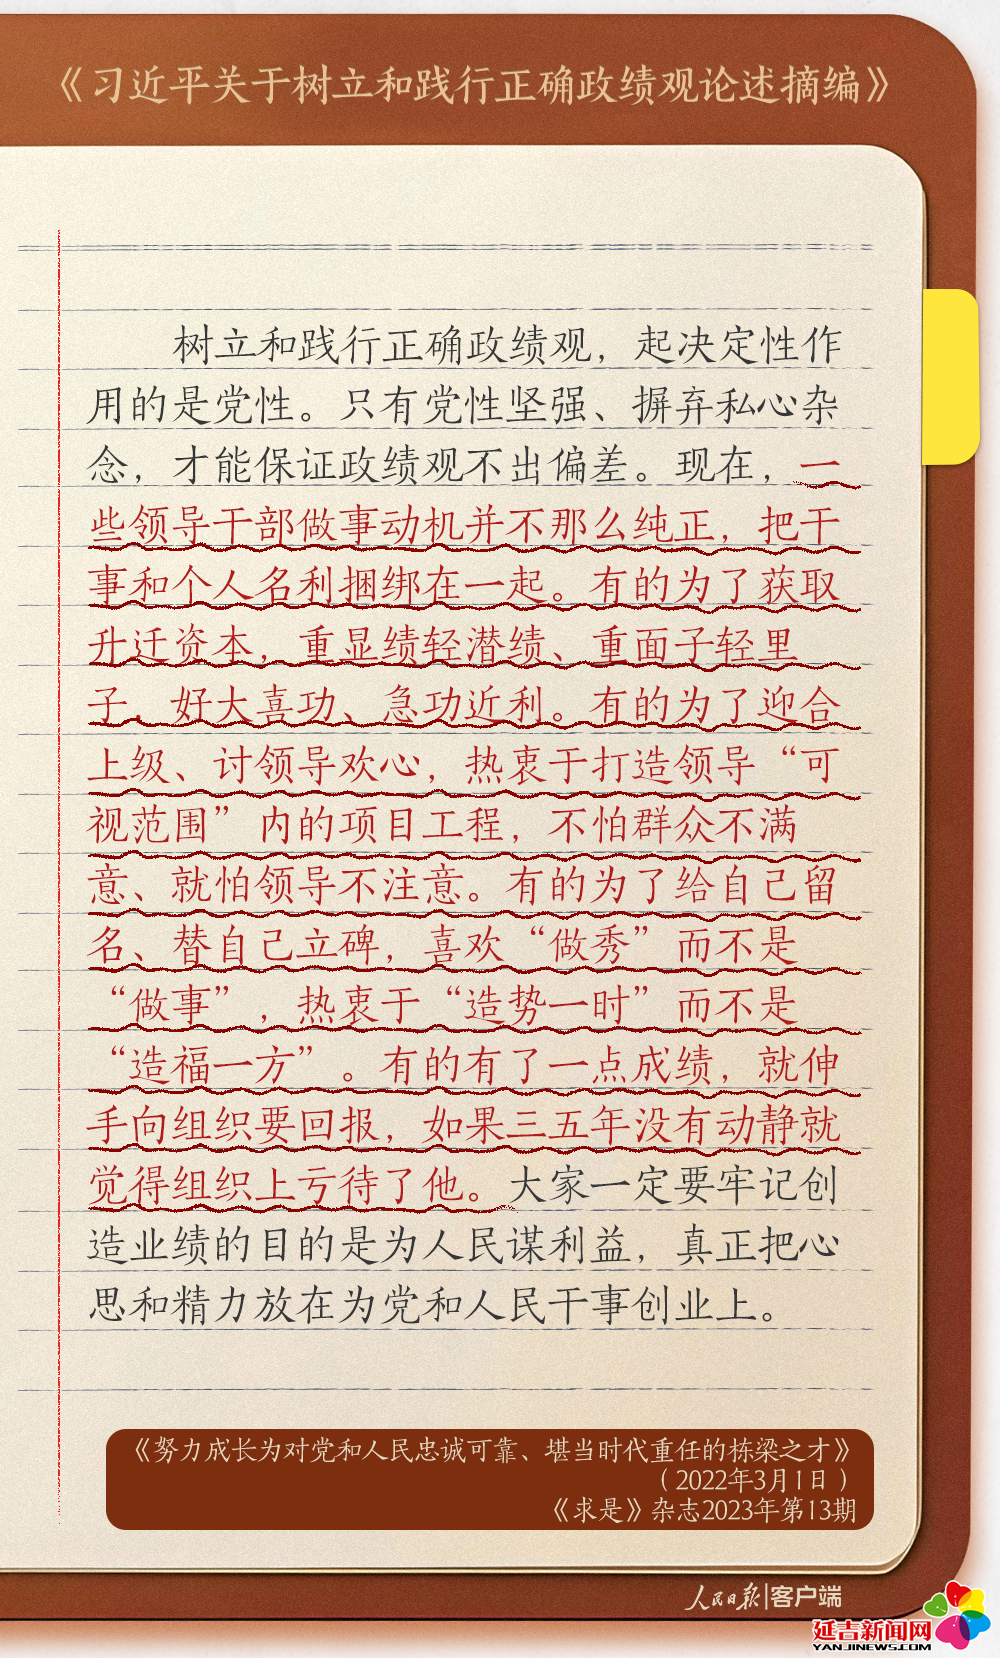 《习近平关于树立和践行正确政绩观论述摘编》
树立和践行正确政绩观，起决定性作
用的是党性。只有党性坚强、摒弃私心杂
念，才能保证政绩观不出偏差。现在，一
些领导干部做事动机并不那么纯正，把干
事和个人名利捆绑在一起。有的为了获取
升迁资本，重显绩轻潜绩、重面子轻里
子，好大喜功、急功近利。有的为了迎合
上级、讨领导欢心，热衷于打造领导“可
视范围”内的项目工程，不怕群众不满
意、就怕领导不注意。有的为了给自己留
名、替自己立碑，喜欢“做秀”而不是
“做事”，热衷于“造势一时”而不是
“造福一方”。有的有了一点成绩，就伸
手向组织要回报，如果三五年没有动静就
觉得组织上亏待了他。大家一定要牢记创
造业绩的目的是为人民谋利益，真正把心
思和精力放在为党和人民干事创业上。
《努力成长为对党和人民忠诚可靠、堪当时代重任的栋梁之才》
（2022年3月1日）
《求是》杂志2023年第13期
人民日报|客户端
延吉新闻网
YANJINEWS.COM